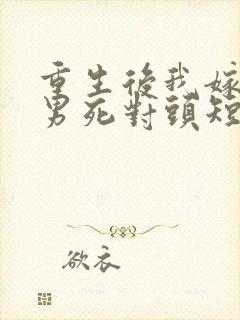 重生後我嫁
男死對頭短
欲衣